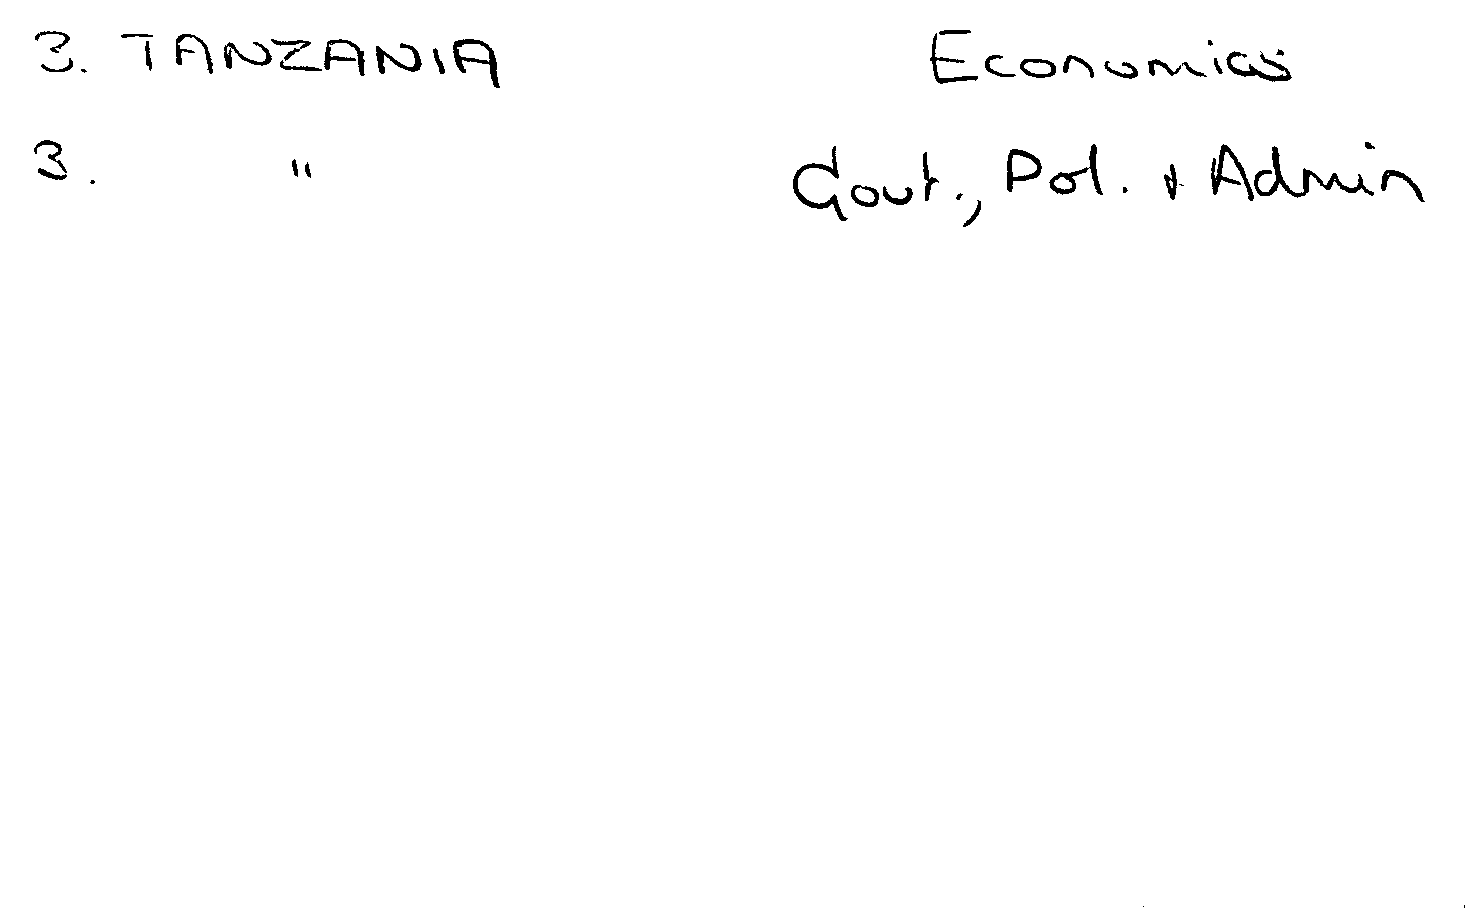 3. TANZANIA Economics
3. " Govt., Pol. + Admin